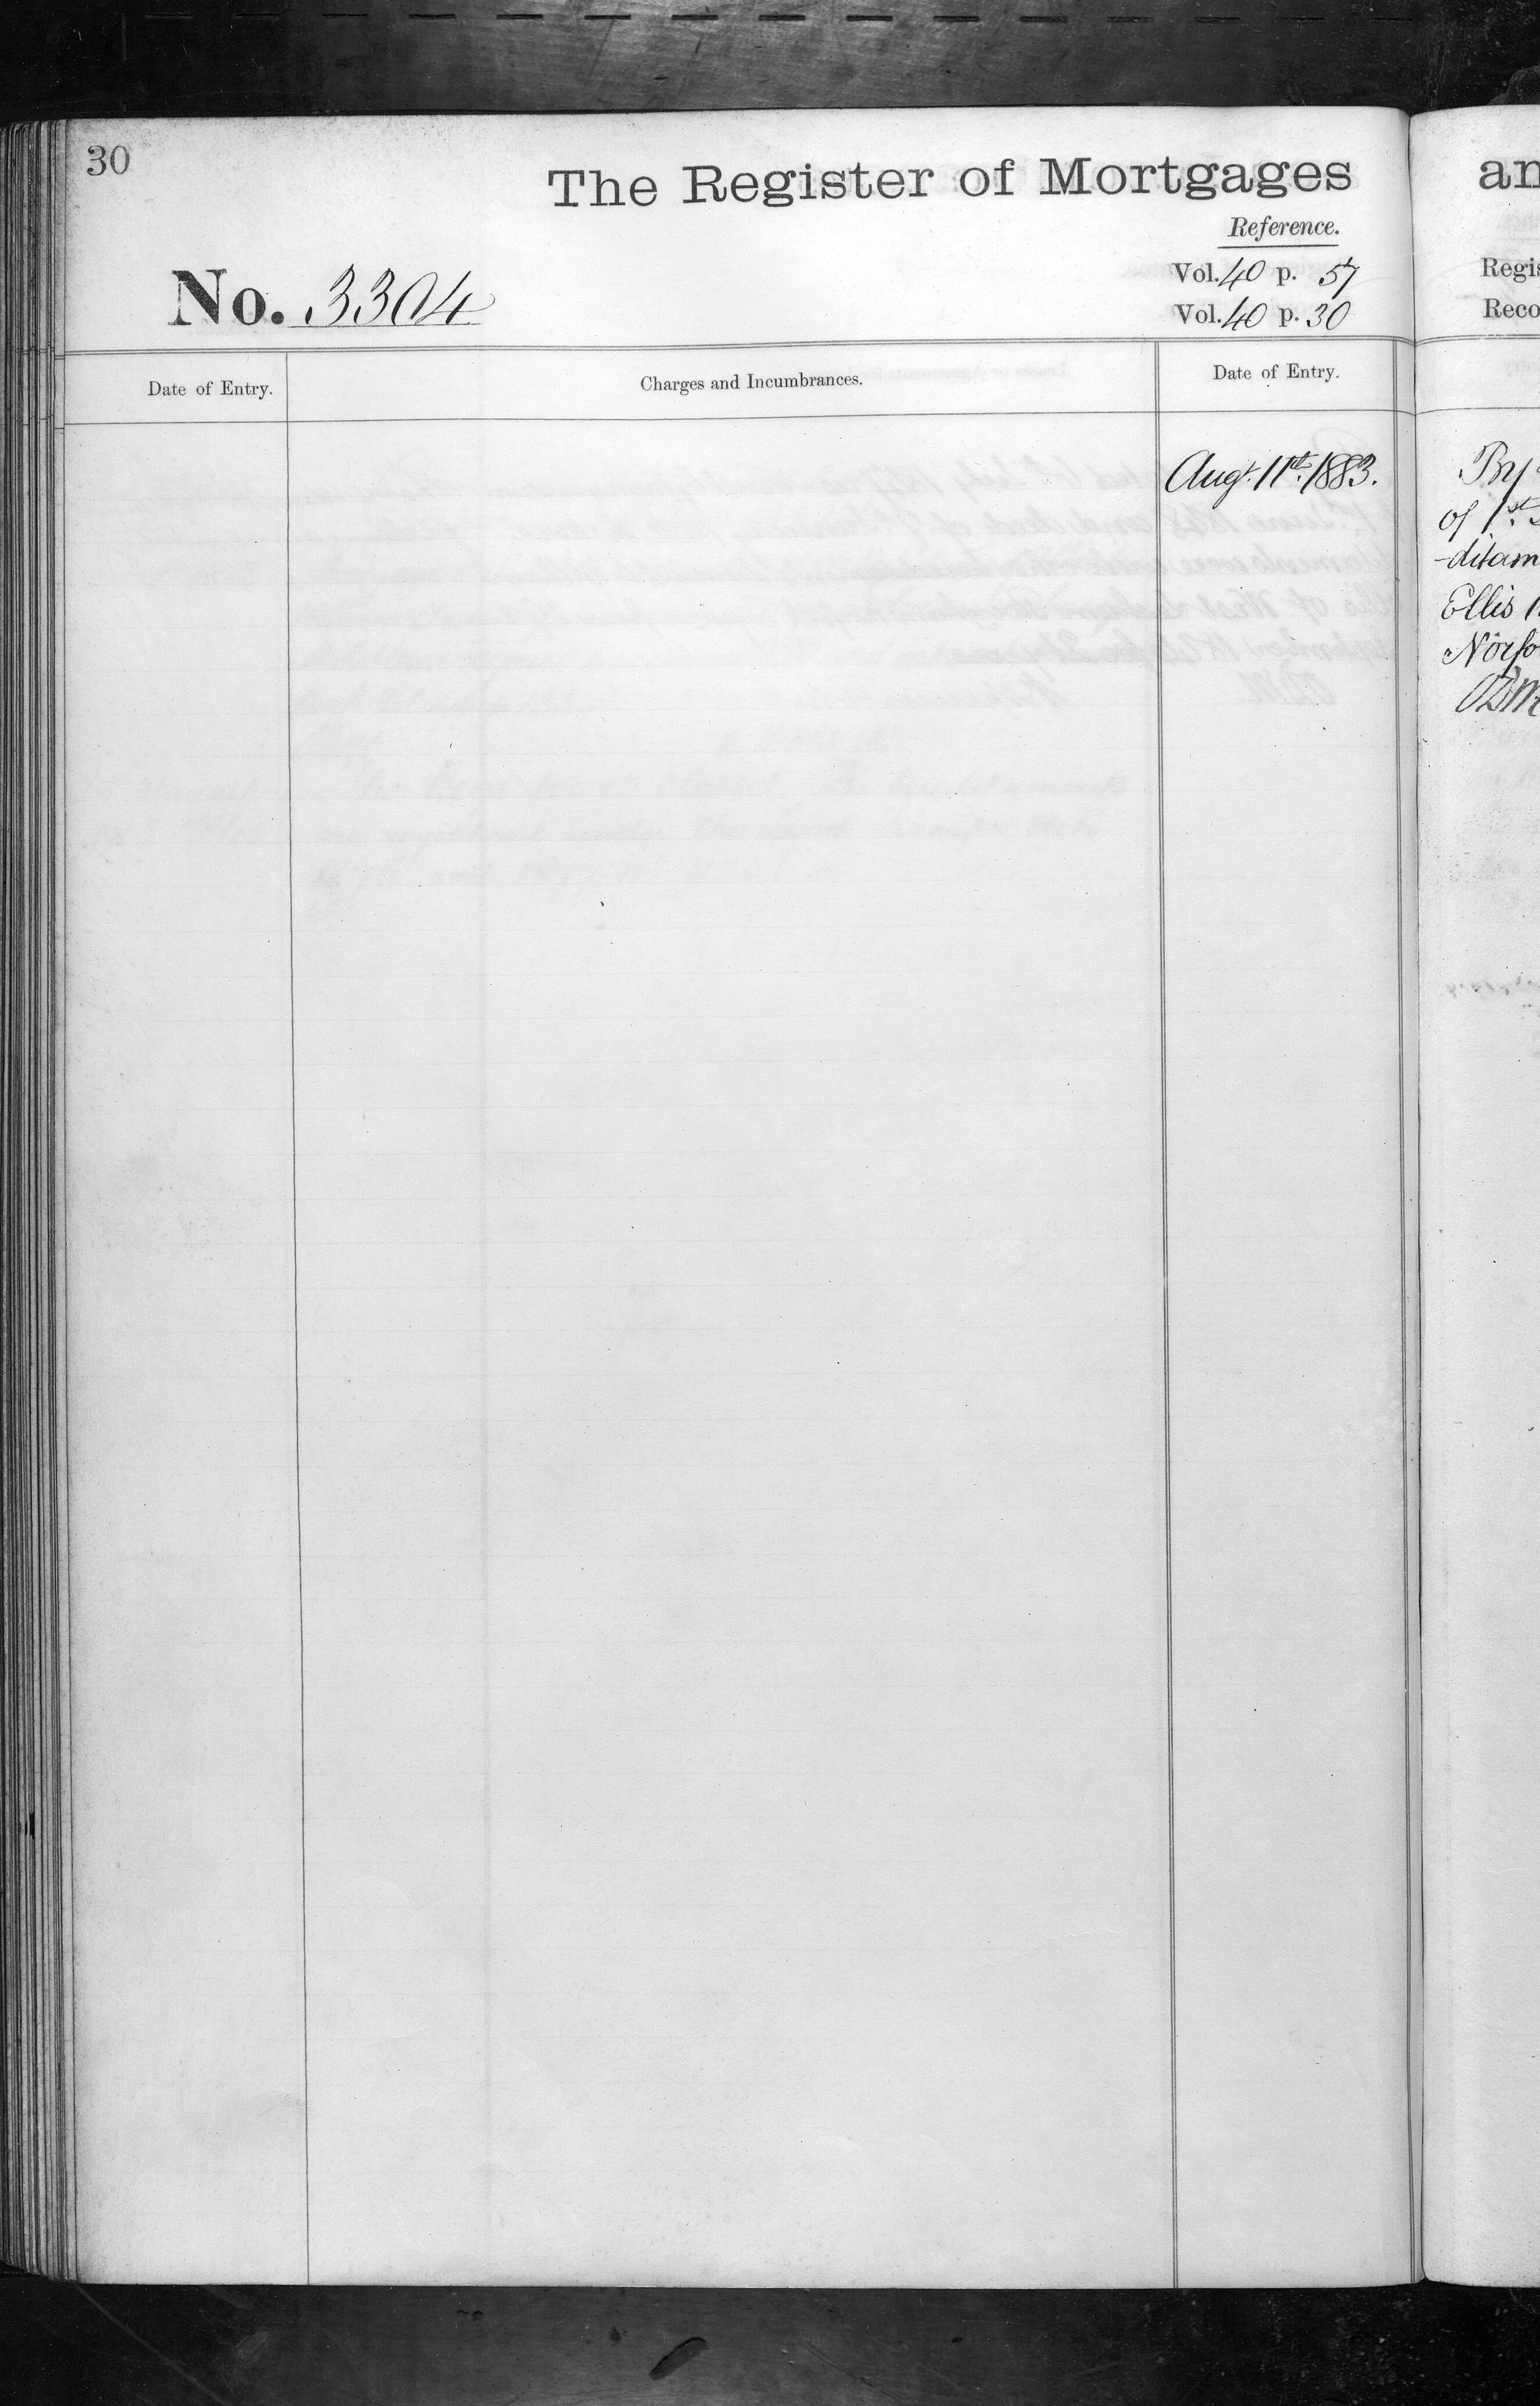 30
The Register of Mortgages
Reference.
No. 3304
Vol. 40 p. 57
Vol. 40 p. 30
Date of Entry.
Charges and Incumbrances.
Date of Entry.
Augt. 11th. 1883.
an
Regis
Reco
By
of 1st.
-ditam
Ellis
Norfo